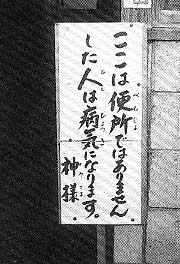 ここは便所ではありません
した人は病気になります。
神様